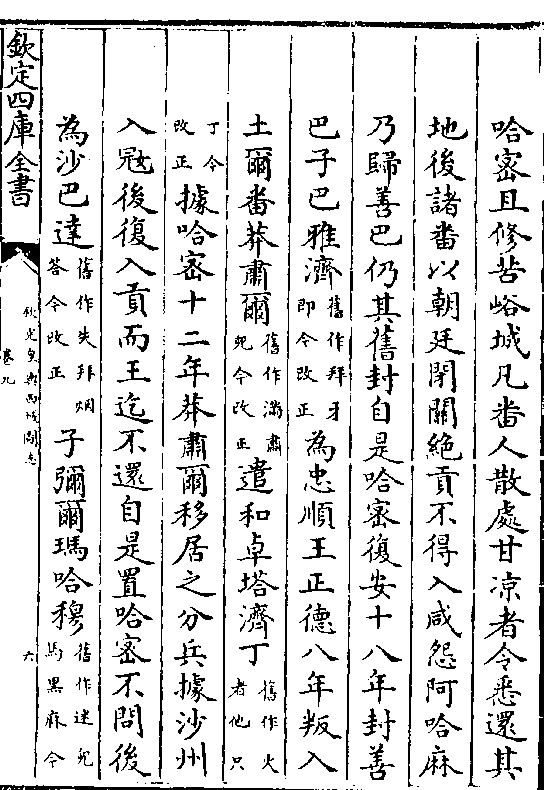 哈密且修苦峪城凡番人散處甘凉者令悉還其
地後諸番以朝廷閉關絶貢不得入咸怨阿哈麻
乃歸善巴仍其舊封自是哈密復安十八年封善
巴子巴雅濟舊作拜牙即今改正為忠順王正德八年叛入
土爾番莽肅爾舊作滿肅兒今改正遣和卓塔濟丁舊作火者他只
丁今改正據哈密十二年莽肅爾移居之分兵據沙州
入寇後復入貢而王迄不還自是置哈密不問後
為沙巴達舊作失拜烟答今改正子彌爾瑪哈穆舊作迷兒馬黑麻今
欽定四庫全書
欽定皇輿西域圖志
卷九
六